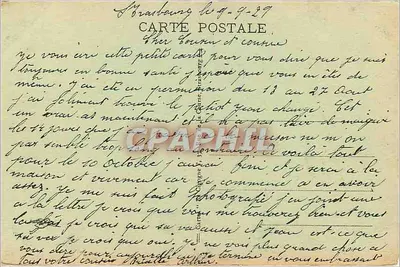 Strasbourg le 9-9-29
CARTE POSTALE
Cher Cousin et cousine
Je vous écrie cette petite carte pour vous dire que je suis
toujours en bonne santé j'espère que vous en ête de
même. J'ai été en permission du 13 au 27 Aout
j'ai joliment trouvé le petit Jean changé. C'est
un vrai as maintenant et il n'a pas
les 15 jours chez
pas semblé
pour le 10 Octobre j'aurai fini et je serai à la
maison et vivement car je commence a en avoir
assez. Je me suis fait photografié j'en joint une
a la lettre je crois que vous me trouverez bien et vous
je crois que sa va aussi et Jean est-ce que
sa va je crois que oui, je ne vois plus grand chose a
vous dire pour aujourd'hui je termine en vous embrassant
tous votre cousin
CPAPHIL